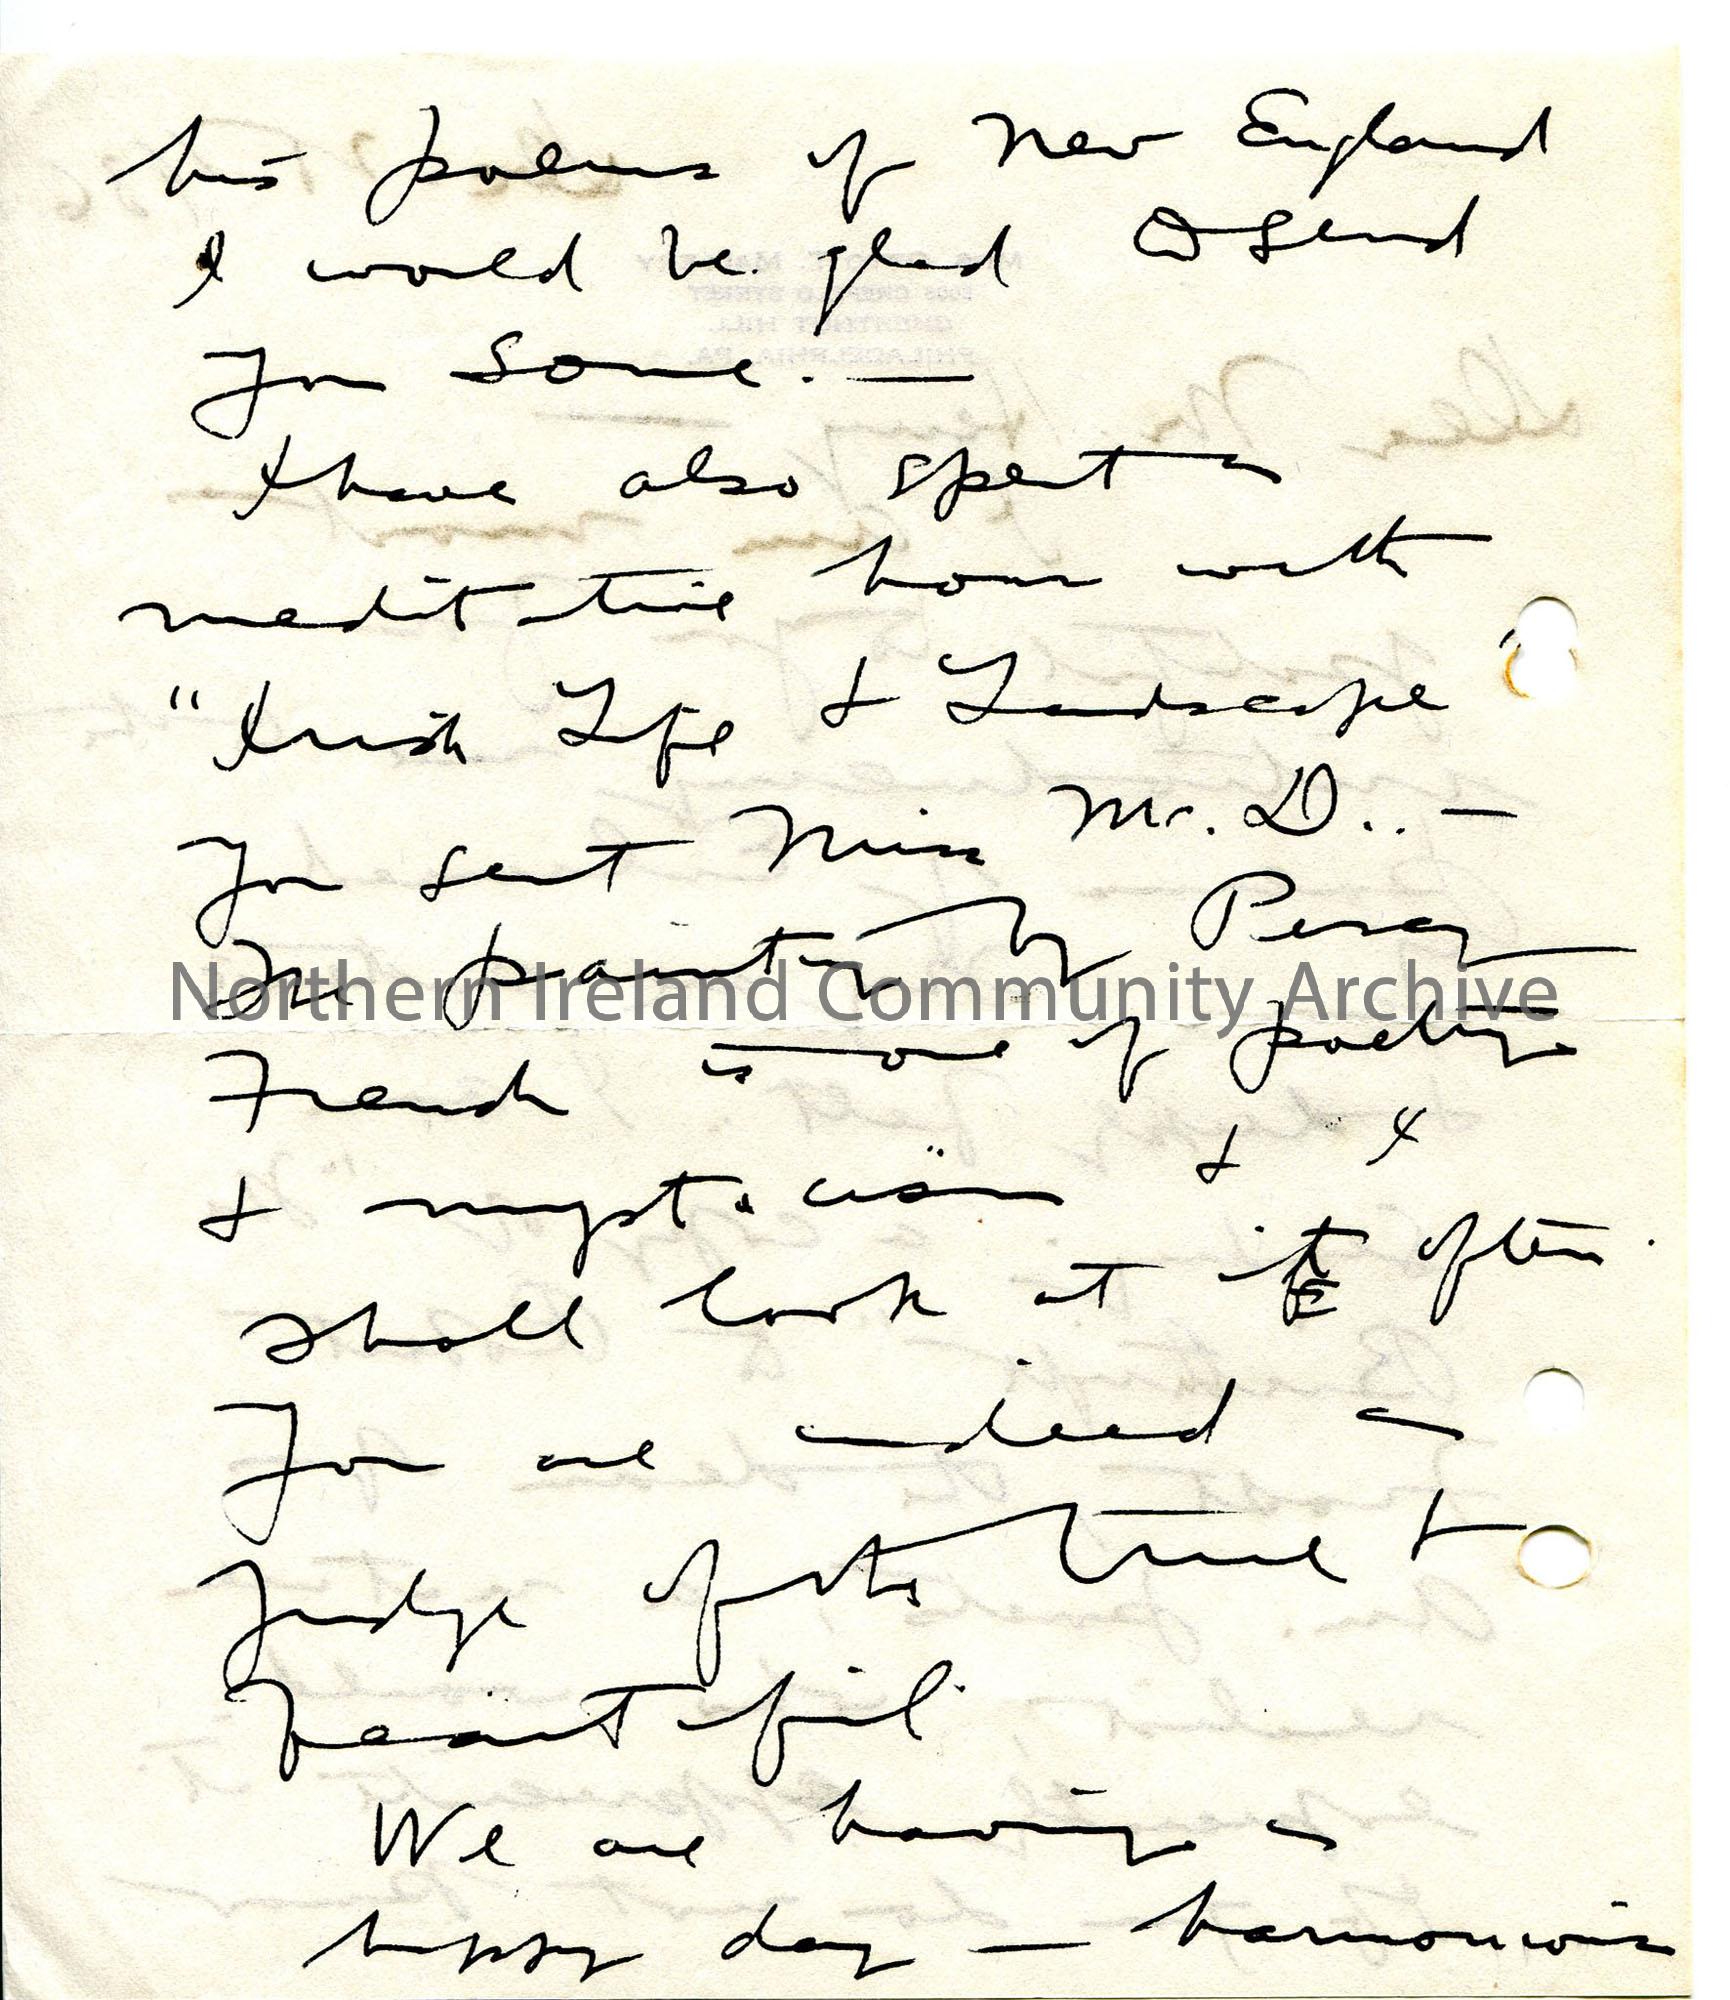 his poems of New England
I would be glad to send
you some. —
I have also spent a
meditative hour with
"Irish Life & Landscape"
you sent Miss Mc. D.. —
The painting by Percy
Northern Ireland Community Archive
French is one of poetry
& mysticism & I
shall look at it often.
You are indeed a
judge of the true &
beautiful.
We are having a
happy day — harmonious